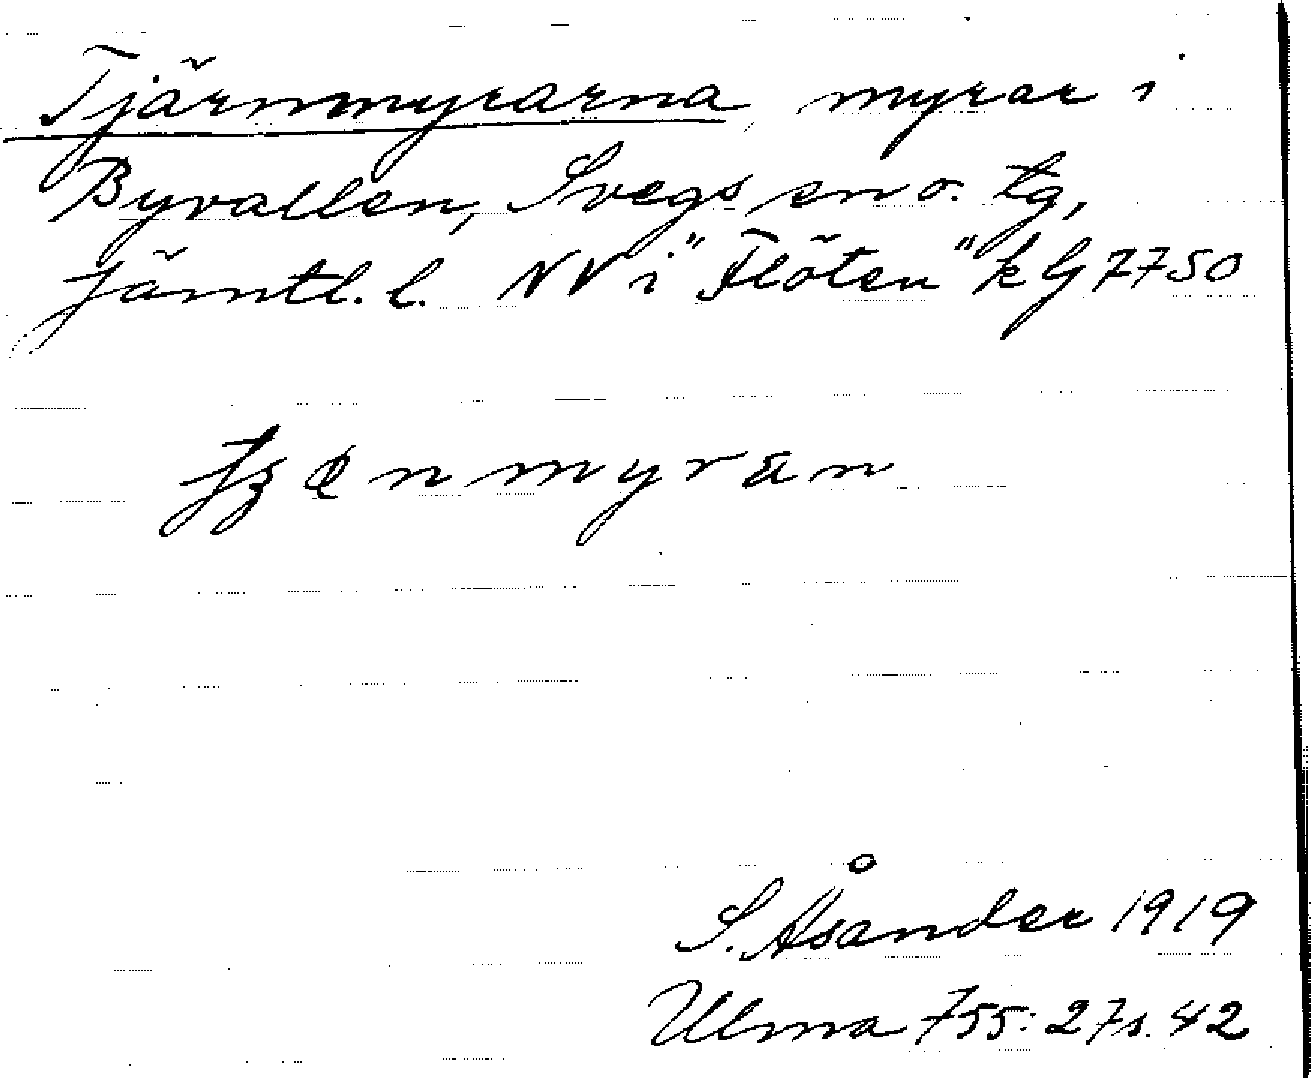 Tjärnmyrarna, myrar i
Byvallen, Svegs sn o. tg,
Jämtl. l. NV i "Flöten" k G 7750
S. Åsander 1919
Ulma 755: 27 s. 42